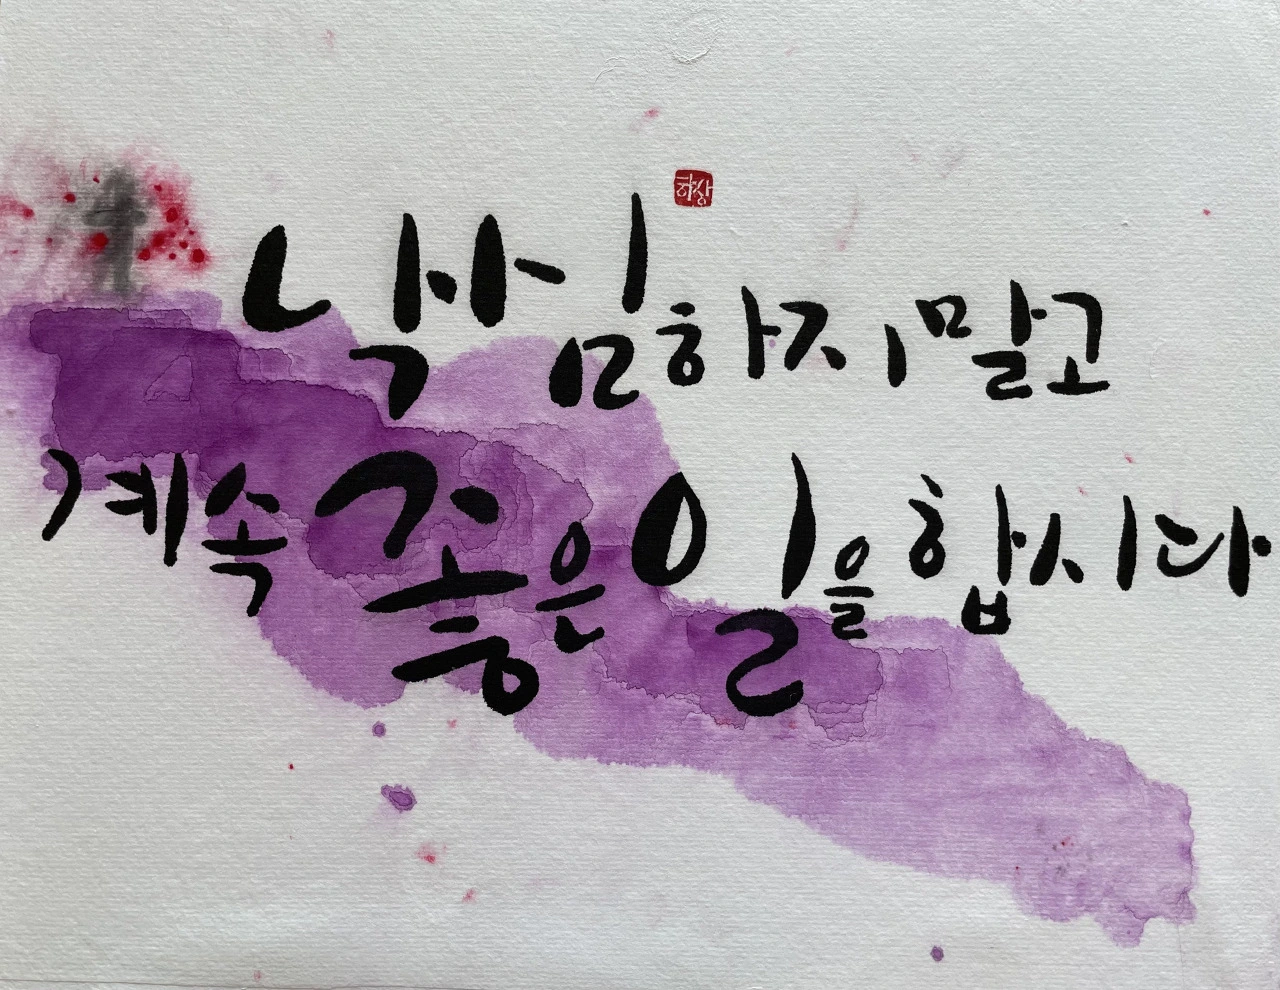 낙심하지 말고
계속 좋은 일을 합시다